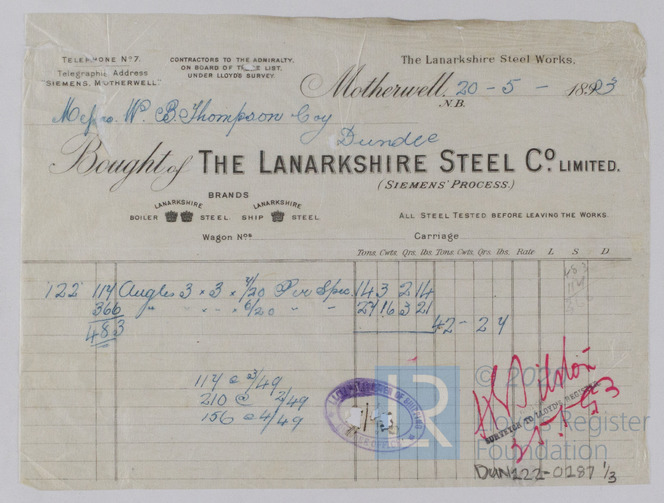 TELEPHONE Nº 7.
Telegraphic Address
"SIEMENS, MOTHERWELL."
CONTRACTORS TO THE ADMIRALTY.
ON BOARD OF LIST.
UNDER LLOYD'S SURVEY.
The Lanarkshire Steel Works,
Motherwell, 20 - 5 - 1893
N.B.
Messrs. W. B. Thompson Coy
Dundee
Bought of THE LANARKSHIRE STEEL Cº LIMITED.
(SIEMENS' PROCESS.)
BRANDS
LANARKSHIRE LANARKSHIRE
BOILER STEEL SHIP STEEL
ALL STEEL TESTED BEFORE LEAVING THE WORKS.
Wagon Nos Carriage
Tons. Cwts. Qrs. lbs. Tons. Cwts. Qrs. lbs. Rate L S D
122 117 Angles 3 × 3 × /20 Per Spec. 14 3 2 14
366 " 6/20 " 27 16 3 21
483 42 - 2 7
117 @ 3/49
210 @ 2/49
156 @ 4/49
LR
© 20
Lloyd's Register
Foundation
SURVEYOR TO LLOYD'S REGISTER
DUN122-0187 1/3